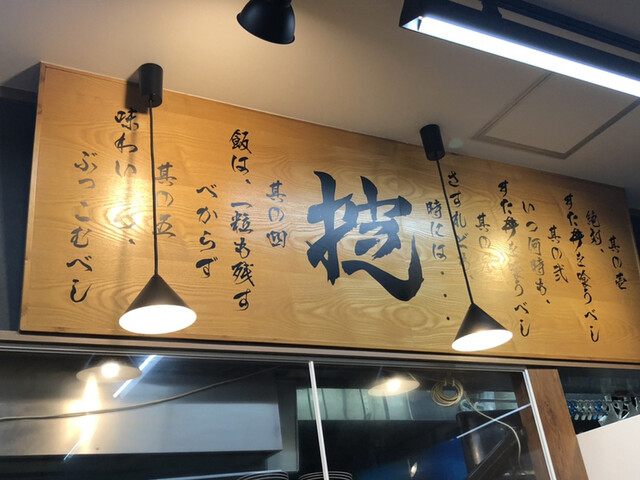 其の壱
絶対、
すた丼を喰うべし
其の弐
いつ何時も、
すた丼を喰うべし
其の
さすれど
時には・・・
掟
其の四
飯は、一粒も残す
べからず
其の五
味わい
ぶっこむべし